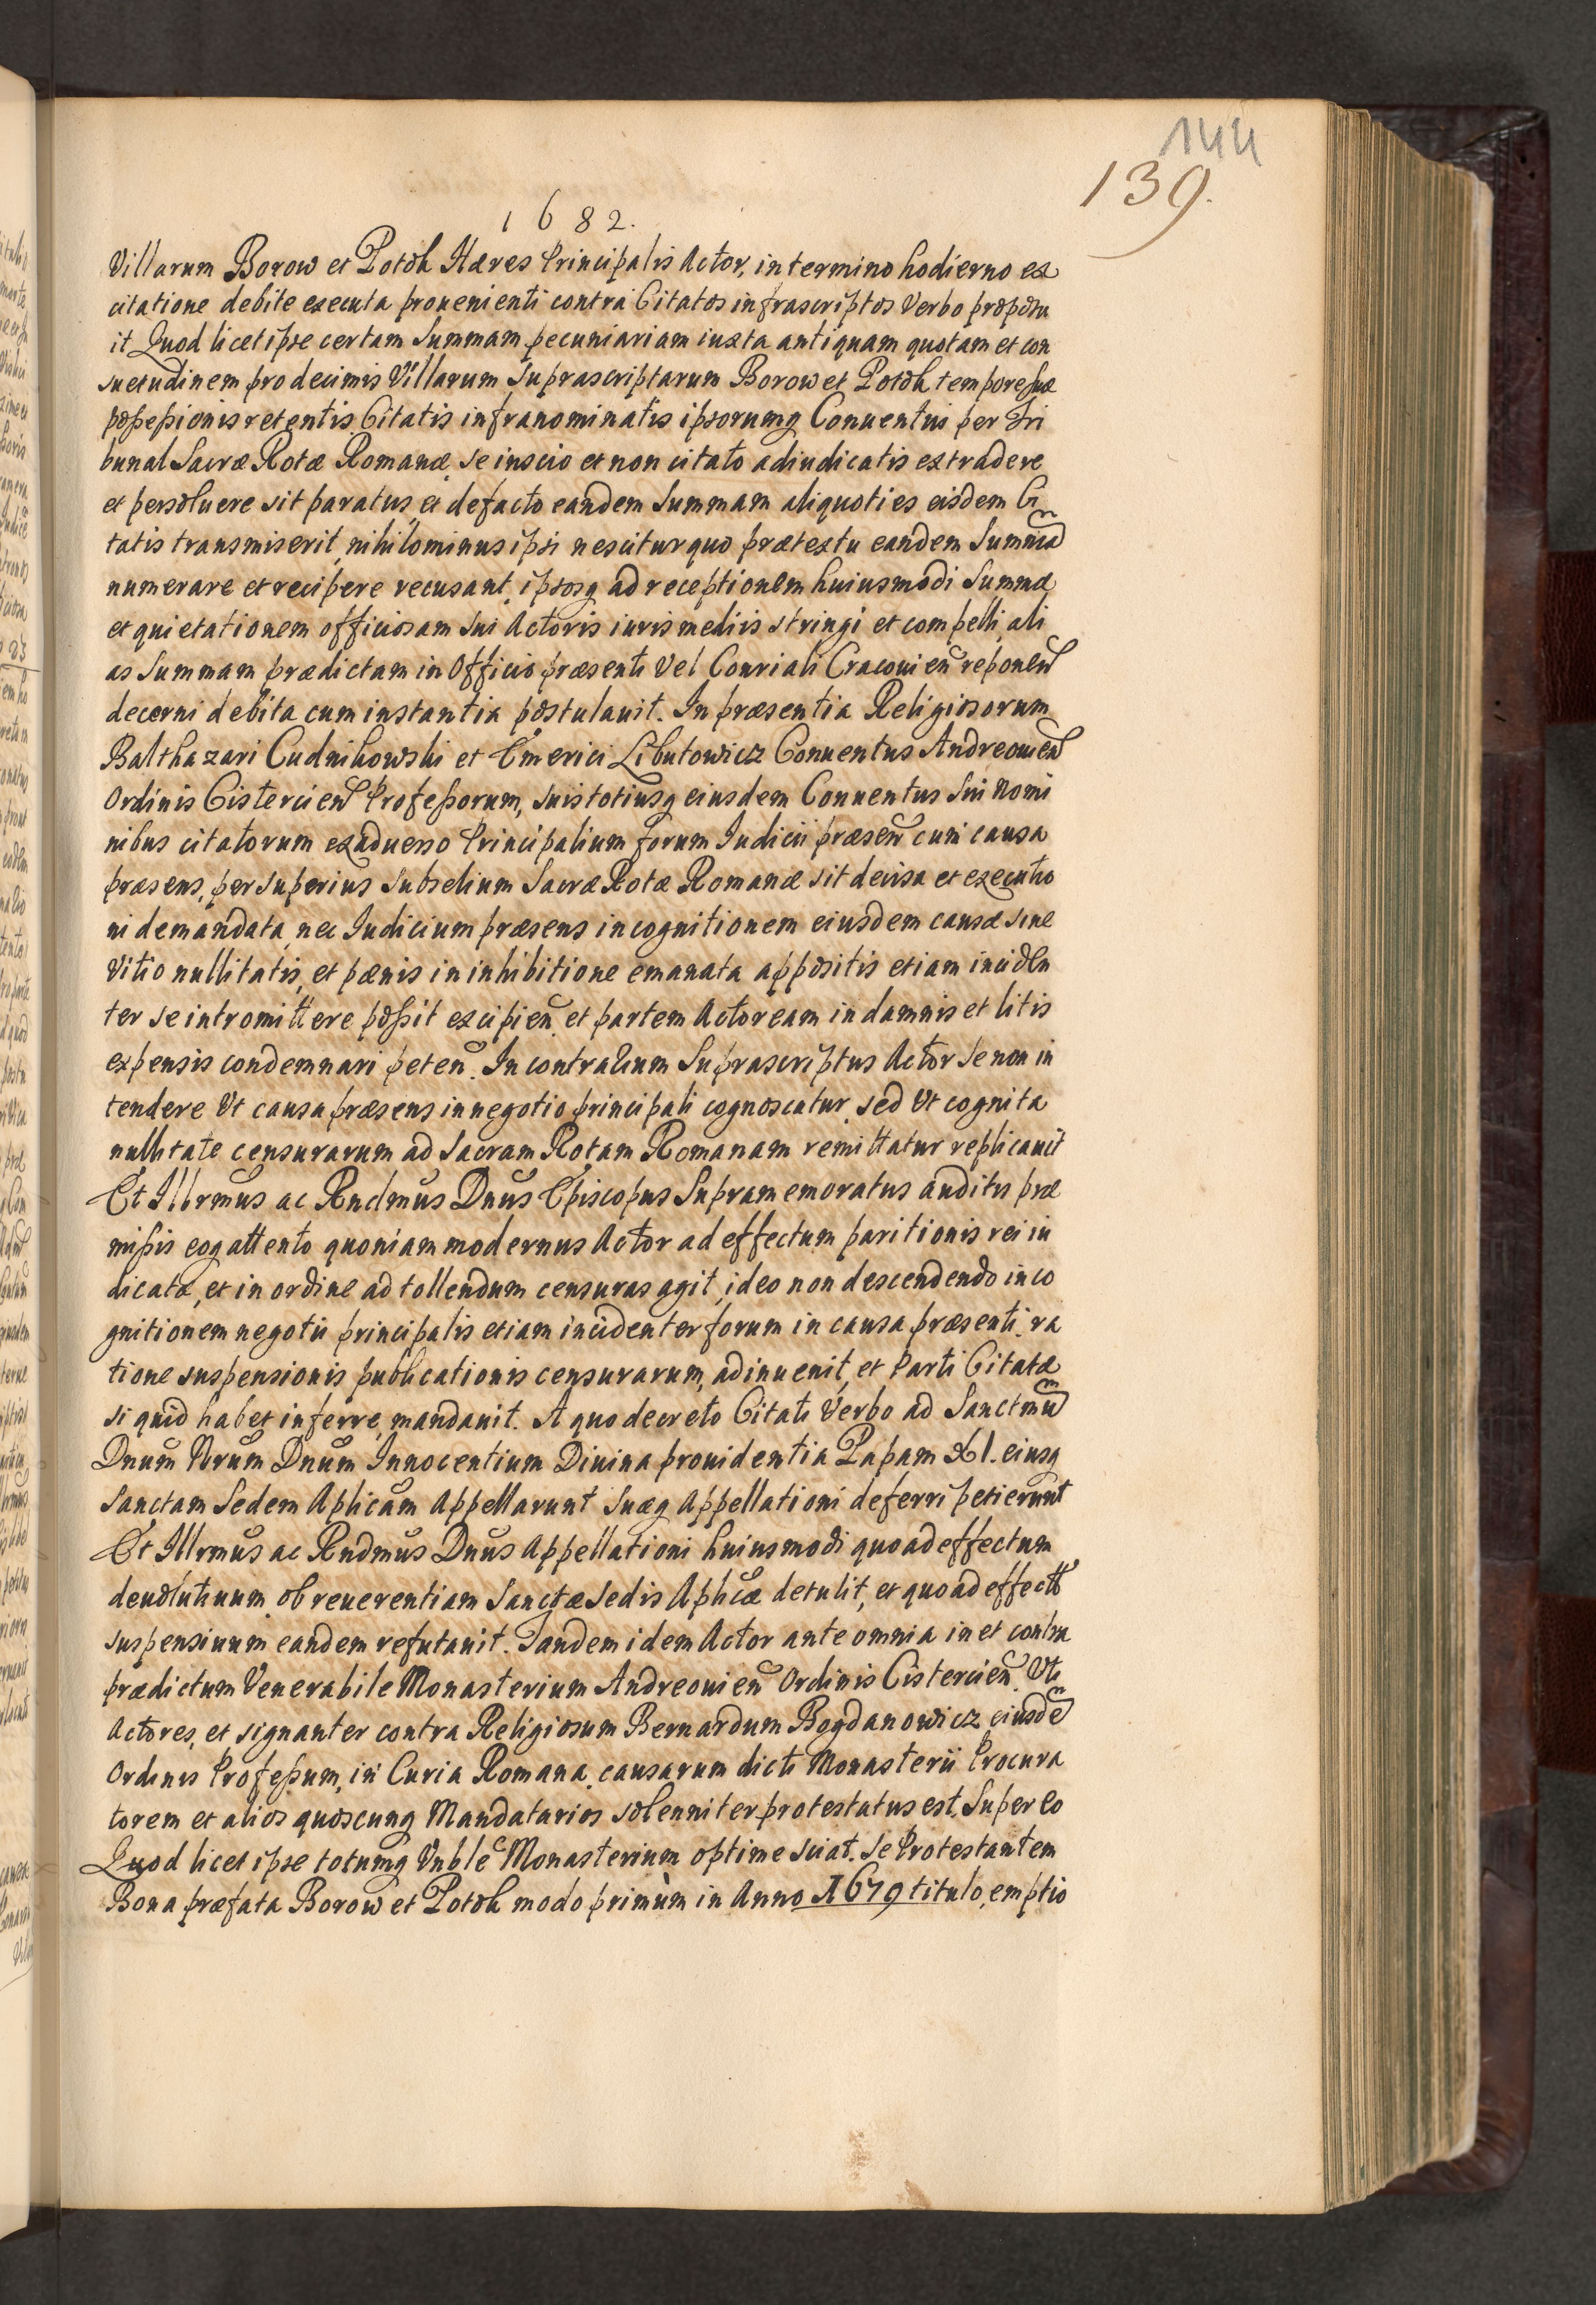 144
139.
1682.
Villarum Borow et Potok Hæres Principalis Actor, in termino hodierno ex
citatione debite executa prouenienti contra Citatos infrascriptos Verbo proposu
it Quod licet ipse certam Summam pecuniariam iuxta antiquam quotam et con
suetudinem pro decimis Villarum Suprascriptarum Borow et Potok tempore suæ
possessionis retentis Citatis infranominatis ipsorumq Conuentui per Tri
bunal Sacræ Rotæ Romanæ se inscio et non citato adiudicatis extradere
et persoluere sit paratus, et de facto eandem Summam aliquoties eisdem Ci
tatis transmiserit, nihilominus ipsi nescitur quo prætextu eandem Summã
numerare et recipere recusant, ipsosq ad receptionem huiusmodi Summæ
et quietationem officiosam sui Actoris iuris mediis stringi et compelli, ali
as Summam prædictam in Officio præsenti Vel Consiali Cracouieñ reponeñ
decerni debita cum instantia postulauit. In præsentia Religiosorum
Balthazari Cudnikowski et Emerici Libutowicz Conuentus Andreouieñ
Ordinis Cistercieñ Professorum, suis totiusq eiusdem Conuentus sui Nomi
nibus citatorum exaduerso Principalium forum Iudicii præseñ cum causa
præsens, per superius Subselium Sacræ Rotæ Romanæ sit decisa et executio
ni demandata, nec Iudicium præsens in cognitionem eiusdem causæ sine
Vitio nullitatis, et pænis in inhibitione emanata appositis etiam inciden
ter se intromittere possit excipieñ et partem Actoream in damnis et litis
expensis condemnari peteñ. In contrarium Suprascriptus Actor se non in
tendere Vt causa præsens in negotio principali cognoscatur, sed Vt cognita
nullitate censurarum ad Sacram Rotam Romanam remittatur replicauit
Et Illrmus ac Rndmus Dnus Episcopus Supramemoratus auditis præ
missis eoq attento quoniam modernus Actor ad effectum paritionis rei iu
dicatæ, et in ordine ad tollendum censuras agit, ideo non descendendo in co
gnitionem negotii principalis etiam incidenter forum in causa præsenti, ra
tione suspensionis publicationis censurarum, adinuenit, et Parti Citatæ
si quid habet inferre, mandauit. A quo decreto Citati Verbo ad Sanctmũ
Dnum Nrum Dnum Innocentium Diuina prouidentia Papam XI. eiusq
Sanctam Sedem Aplicam Appellarunt suæq Appellationi deferri petierunt
Et Illrmus ac Rndmus Dnus Appellationi huiusmodi quoad effectum
deuolutiuum ob reuerentiam Sanctæ Sedis Aplicæ detulit, et quoad effectũ
suspensiuum eandem refutauit. Tandem idem Actor ante omnia in et contra
prædictum Venerabile Monasterium Andreouieñ Ordinis Cistercieñ Vti
Actores, et signanter contra Religiosum Bernardum Bogdanowicz eiusdẽ
Ordinis Professum, in Curia Romana causarum dicti Monasterii Procura
torem et alios quoscunq Mandatarios solenniter protestatus est, Super eo
Quod licet ipse totumq Vnble Monasterium optime sciat, se Protestantem
Bona præfata Borow et Potok modo primùm in Anno 1679 titulo, emptio